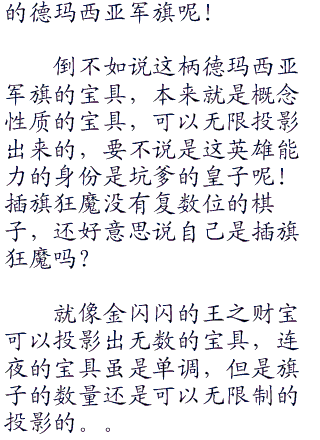 的德玛西亚军旗呢！
倒不如说这柄德玛西亚
军旗的宝具，本来就是概念
性质的宝具，可以无限投影
出来的，要不说是这英雄能
力的身份是坑爹的皇子呢！
插旗狂魔没有复数位的棋
子，还好意思说自己是插旗
狂魔吗？
就像金闪闪的王之财宝
可以投影出无数的宝具，连
夜的宝具虽是单调，但是旗
子的数量还是可以无限制的
投影的。。